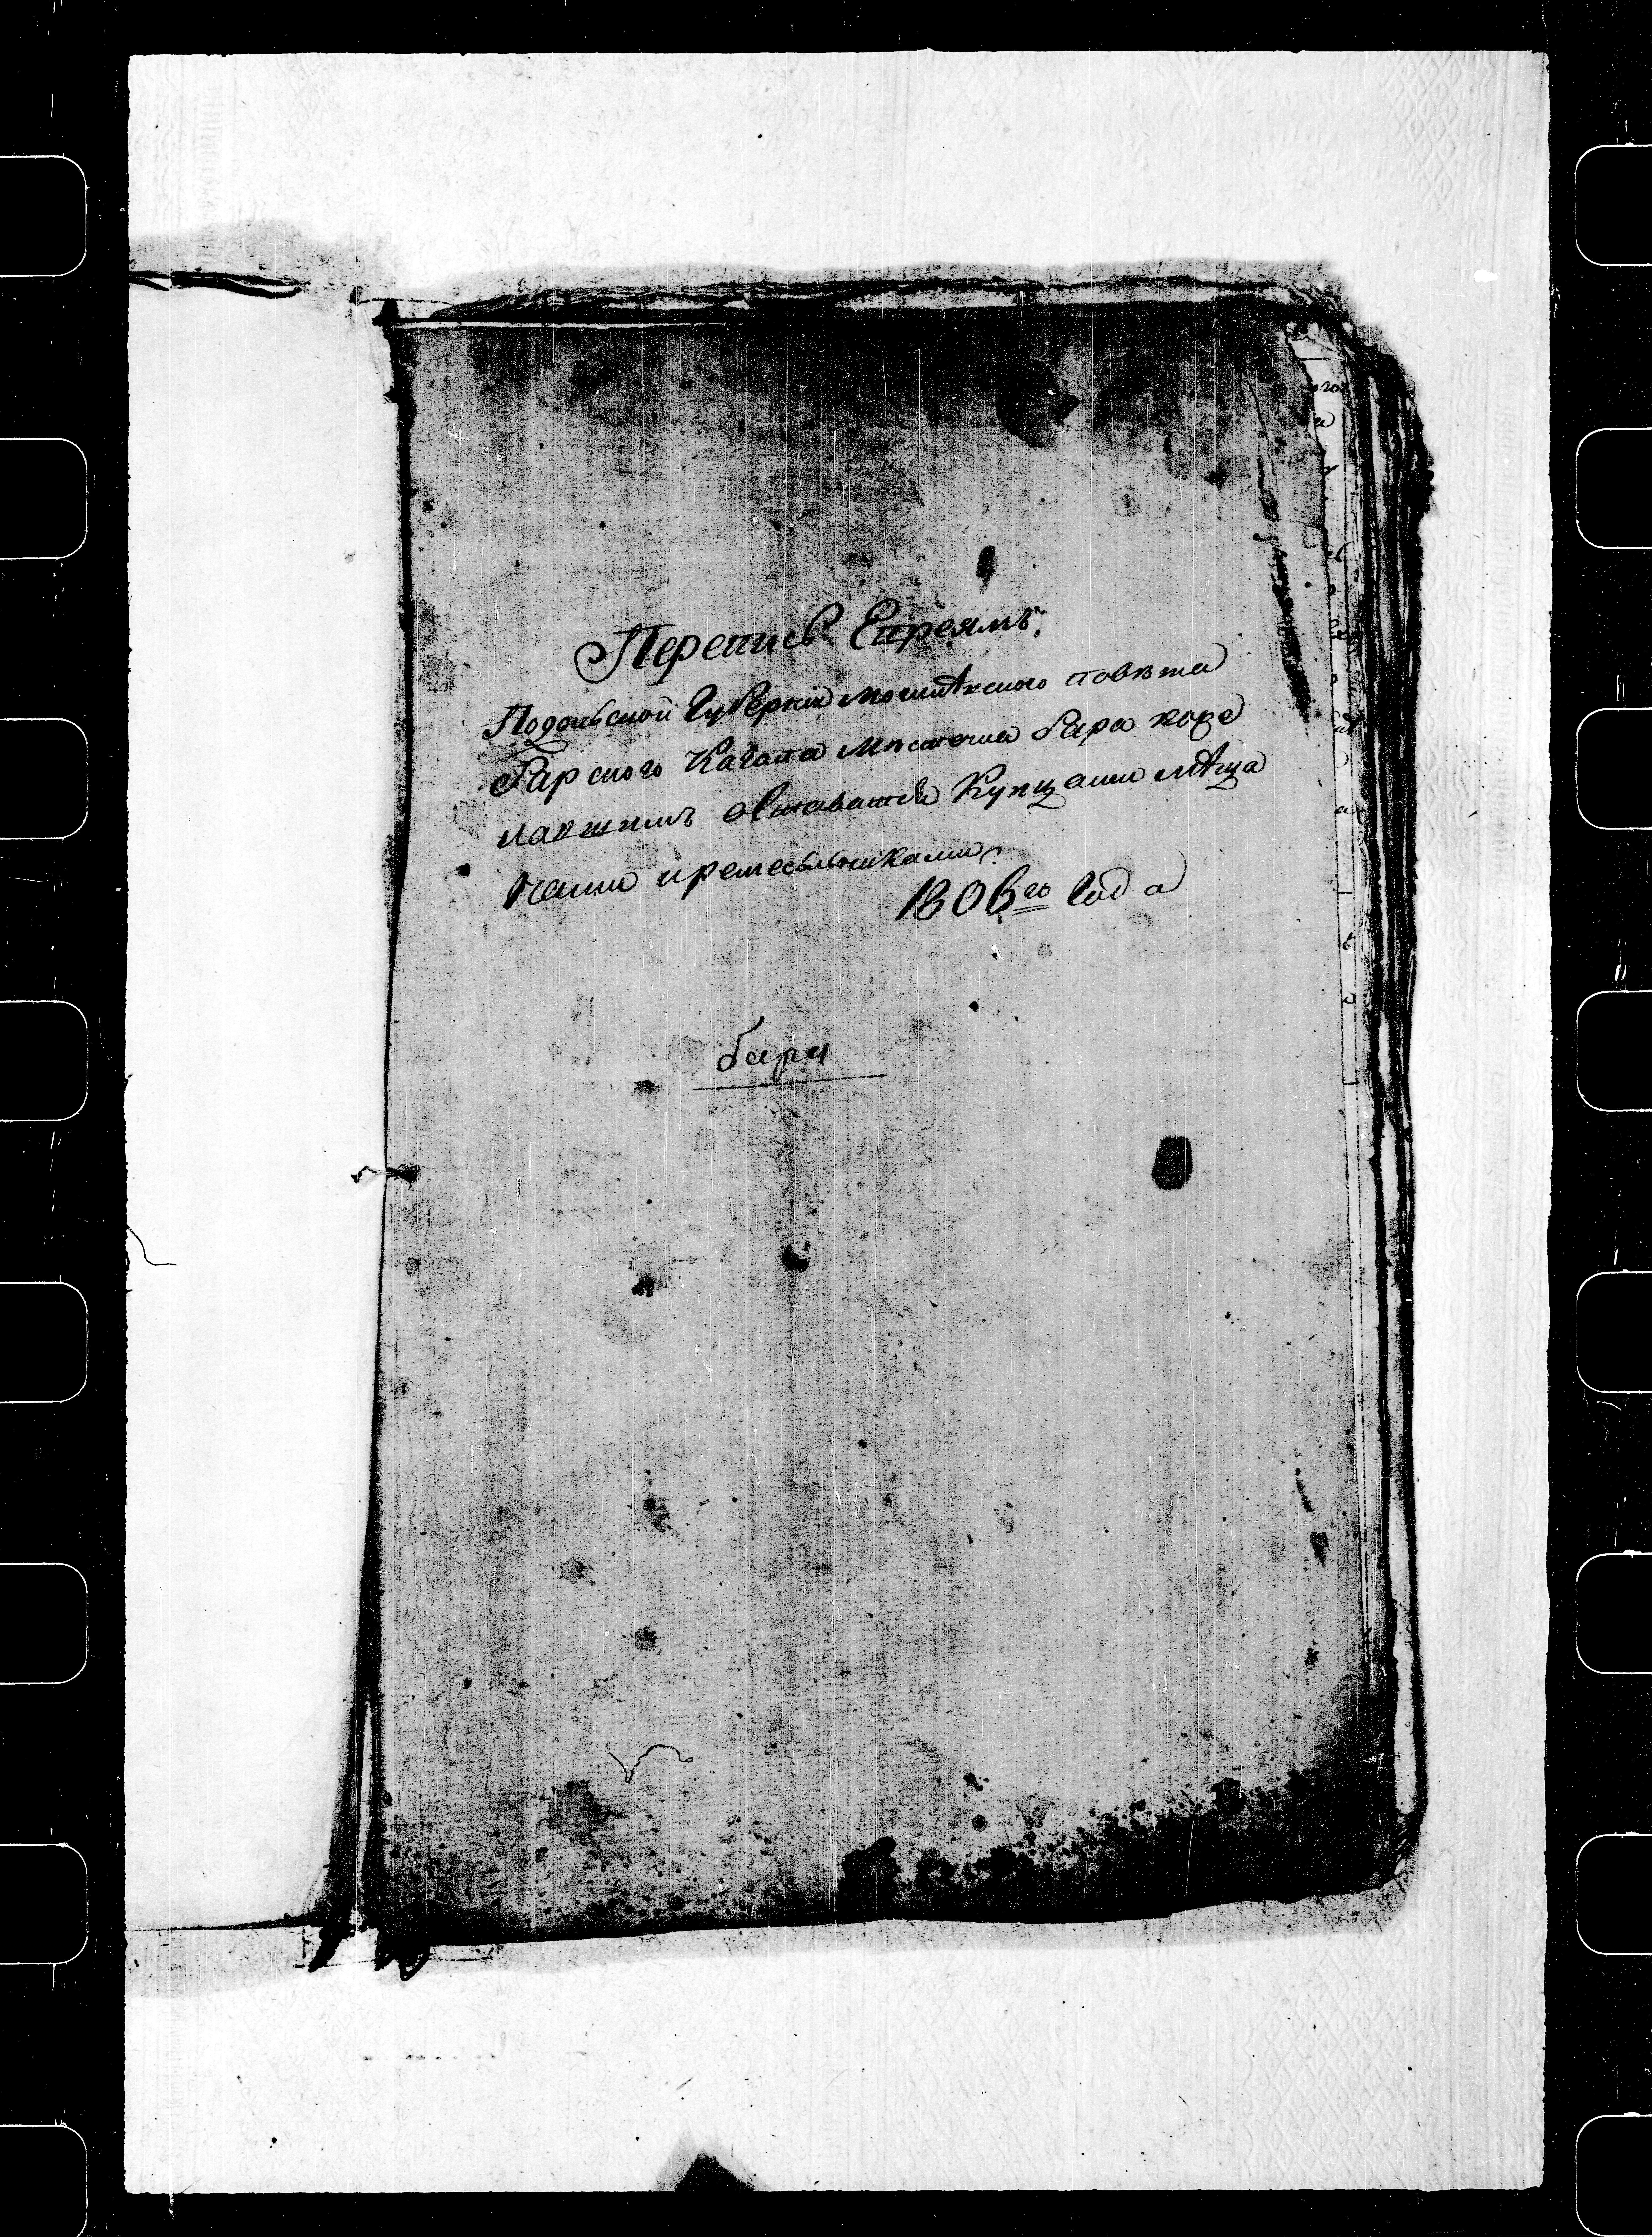 Перепись Евреямъ,
Подольской Губерніи Могилѣвского повѣта
Барского Кагала Мѣстечка Бара
Купцами мѣща
нами и ремесьлниками.
1806го Года
бара